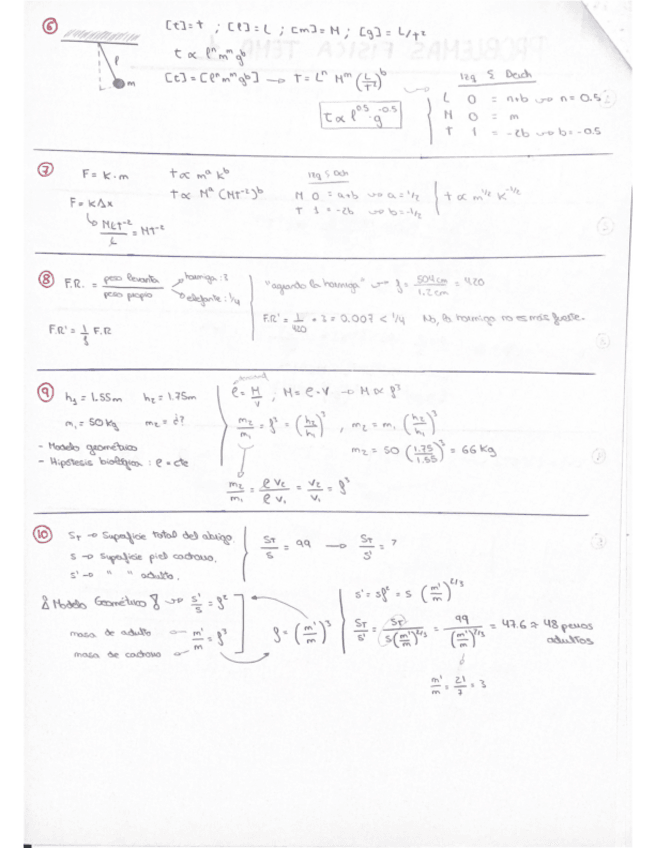 6
[t]=t ; [l]=L ; [m]=M ; [g]=L/t²
l
m
t ∝ lⁿ mᵐ gᵇ
[t]=[lⁿ mᵐ gᵇ] → T = Lⁿ Mᵐ (L/T²)ᵇ
t ∝ l^0.5 · g^-0.5
Izq Σ Dech
L 0 = n+b → n=0.5
M 0 = m
T 1 = -2b → b=-0.5
7
F = K·m
t ∝ mᵃ kᵇ
t ∝ Mᵃ (MT⁻²)ᵇ
F = KΔx
MLT⁻²/L = MT⁻²
Izq S Dch
M 0 = a+b → a=1/2
T 1 = -2b → b=-1/2
t ∝ m^1/2 K^-1/2
8
F.R. = peso levanta/peso propio
hormiga: 3
elefante: 1/4
F.R' = 1/ρ F.R
"agrando la hormiga" → ρ = 504cm/1.2cm = 420
F.R' = 1/420 * 3 = 0.007 < 1/4 No, la hormiga no es más fuerte.
9
h₁ = 1.55m h₂ = 1.75m
m₁ = 50 Kg m₂ = ¿?
- Modelo geométrico
- Hipótesis biológica : ρ = cte
ρ = M/V , M = ρ·V → M ∝ ρ³
m₂/m₁ = ρ³ = (h₂/h₁)³ , m₂ = m₁ (h₂/h₁)³
m₂ = 50 (1.75/1.55)³ = 66 Kg
m₂/m₁ = ρ V₂/ρ V₁ = V₂/V₁ = ρ³
10
S_T → Superficie total del abrigo
S → Superficie piel cachorro.
S' → " " adulto.
S_T/S = 99 → S_T/S' = ?
Modelo Geométrico → S'/S = ρ²
masa de adulto
masa de cachorro
m'/m = ρ³
ρ = (m'/m)³
S' = Sρ² = S (m'/m)^2/3
S_T/S' = S_T/S(m'/m)^2/3 = 99/(m'/m)^2/3 = 47.6 ≈ 48 perros
adultos
m'/m = 21/7 = 3